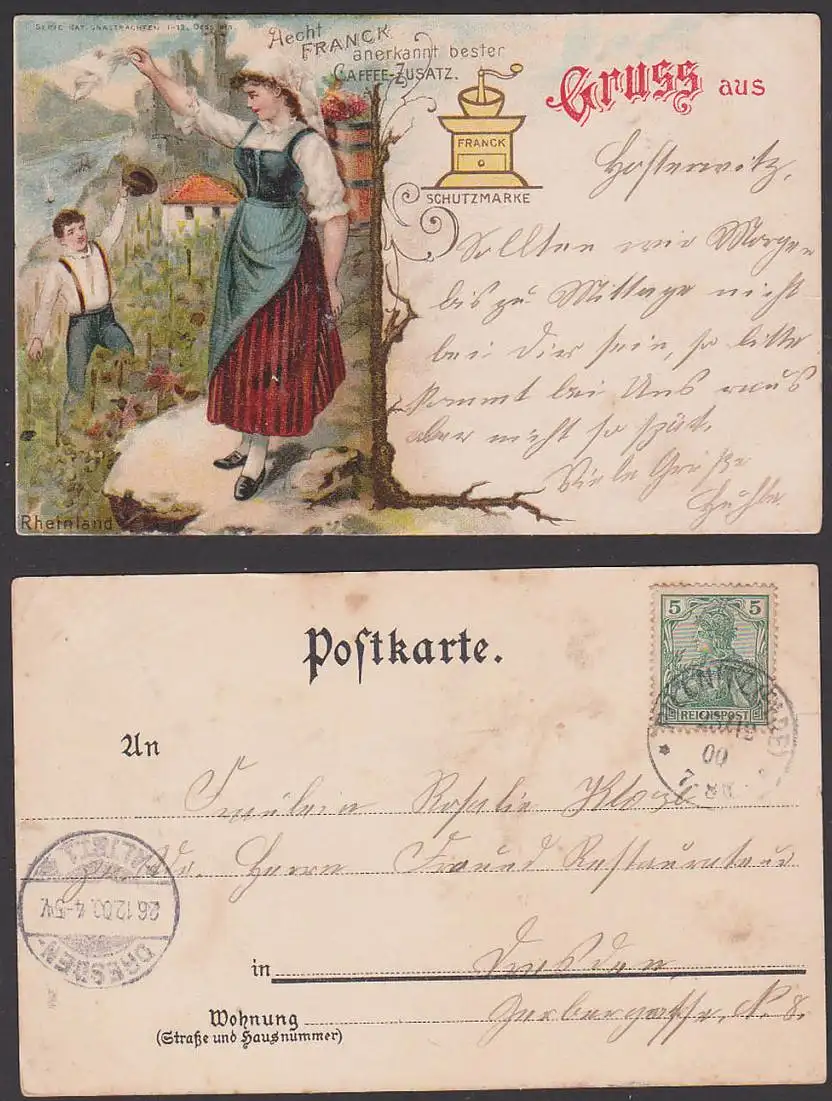 SERIE NATIONALTRACHTEN 1-12. Dess.
Aecht
FRANCK
anerkannt bester
CAFFEE-ZUSATZ.
FRANCK
SCHUTZMARKE
Gruss aus
Hosterwitz,
Sollten wir Morgen
bis zu Mittage nicht
bei Dir sein, so bitte
kommt bei Uns raus
aber nicht so spät.
Viele Grüße
Rheinland
Postkarte.
5 5
REICHSPOST
00
7-8
An
Fräulein Rosalie
Herrn Freund Restaurateur
DRESDEN-
26.12.00. 4-5V.
ALTST. 1
in Dresden,
Wohnung Gerbergasse, N. 8.
(Straße und Hausnummer)